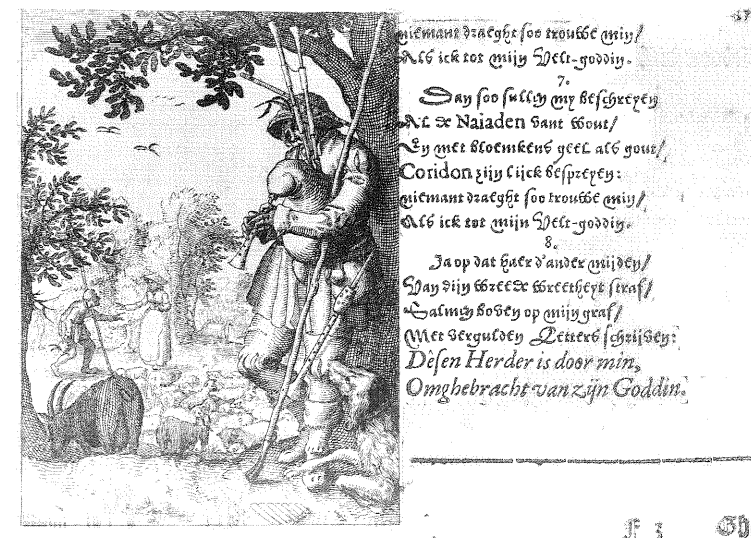 niemant draeght soo trouwe min/
Als ick tot mijn Velt-goddin.
7.
Dan soo sullen my beschreyen
Al de Naiaden vant wout/
En met bloemkens geel als gout/
Coridon zijn lijck bespreyen:
niemant draeght soo trouwe min/
Als ick tot mijn Velt-goddin.
8.
Ja op dat haer d'ander mijden/
Van dijn wreede wreetheyt straf/
Salmen boven op mijn graf/
Met vergulden Letters schrijven:
Desen Herder is door min,
Omghebracht van zijn Goddin.
F 3 Gh